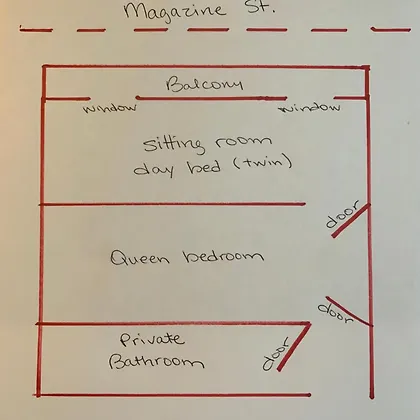 Magazine St.
Balcony
window
window
sitting room
day bed (twin)
door
Queen bedroom
door
Private
Bathroom
door